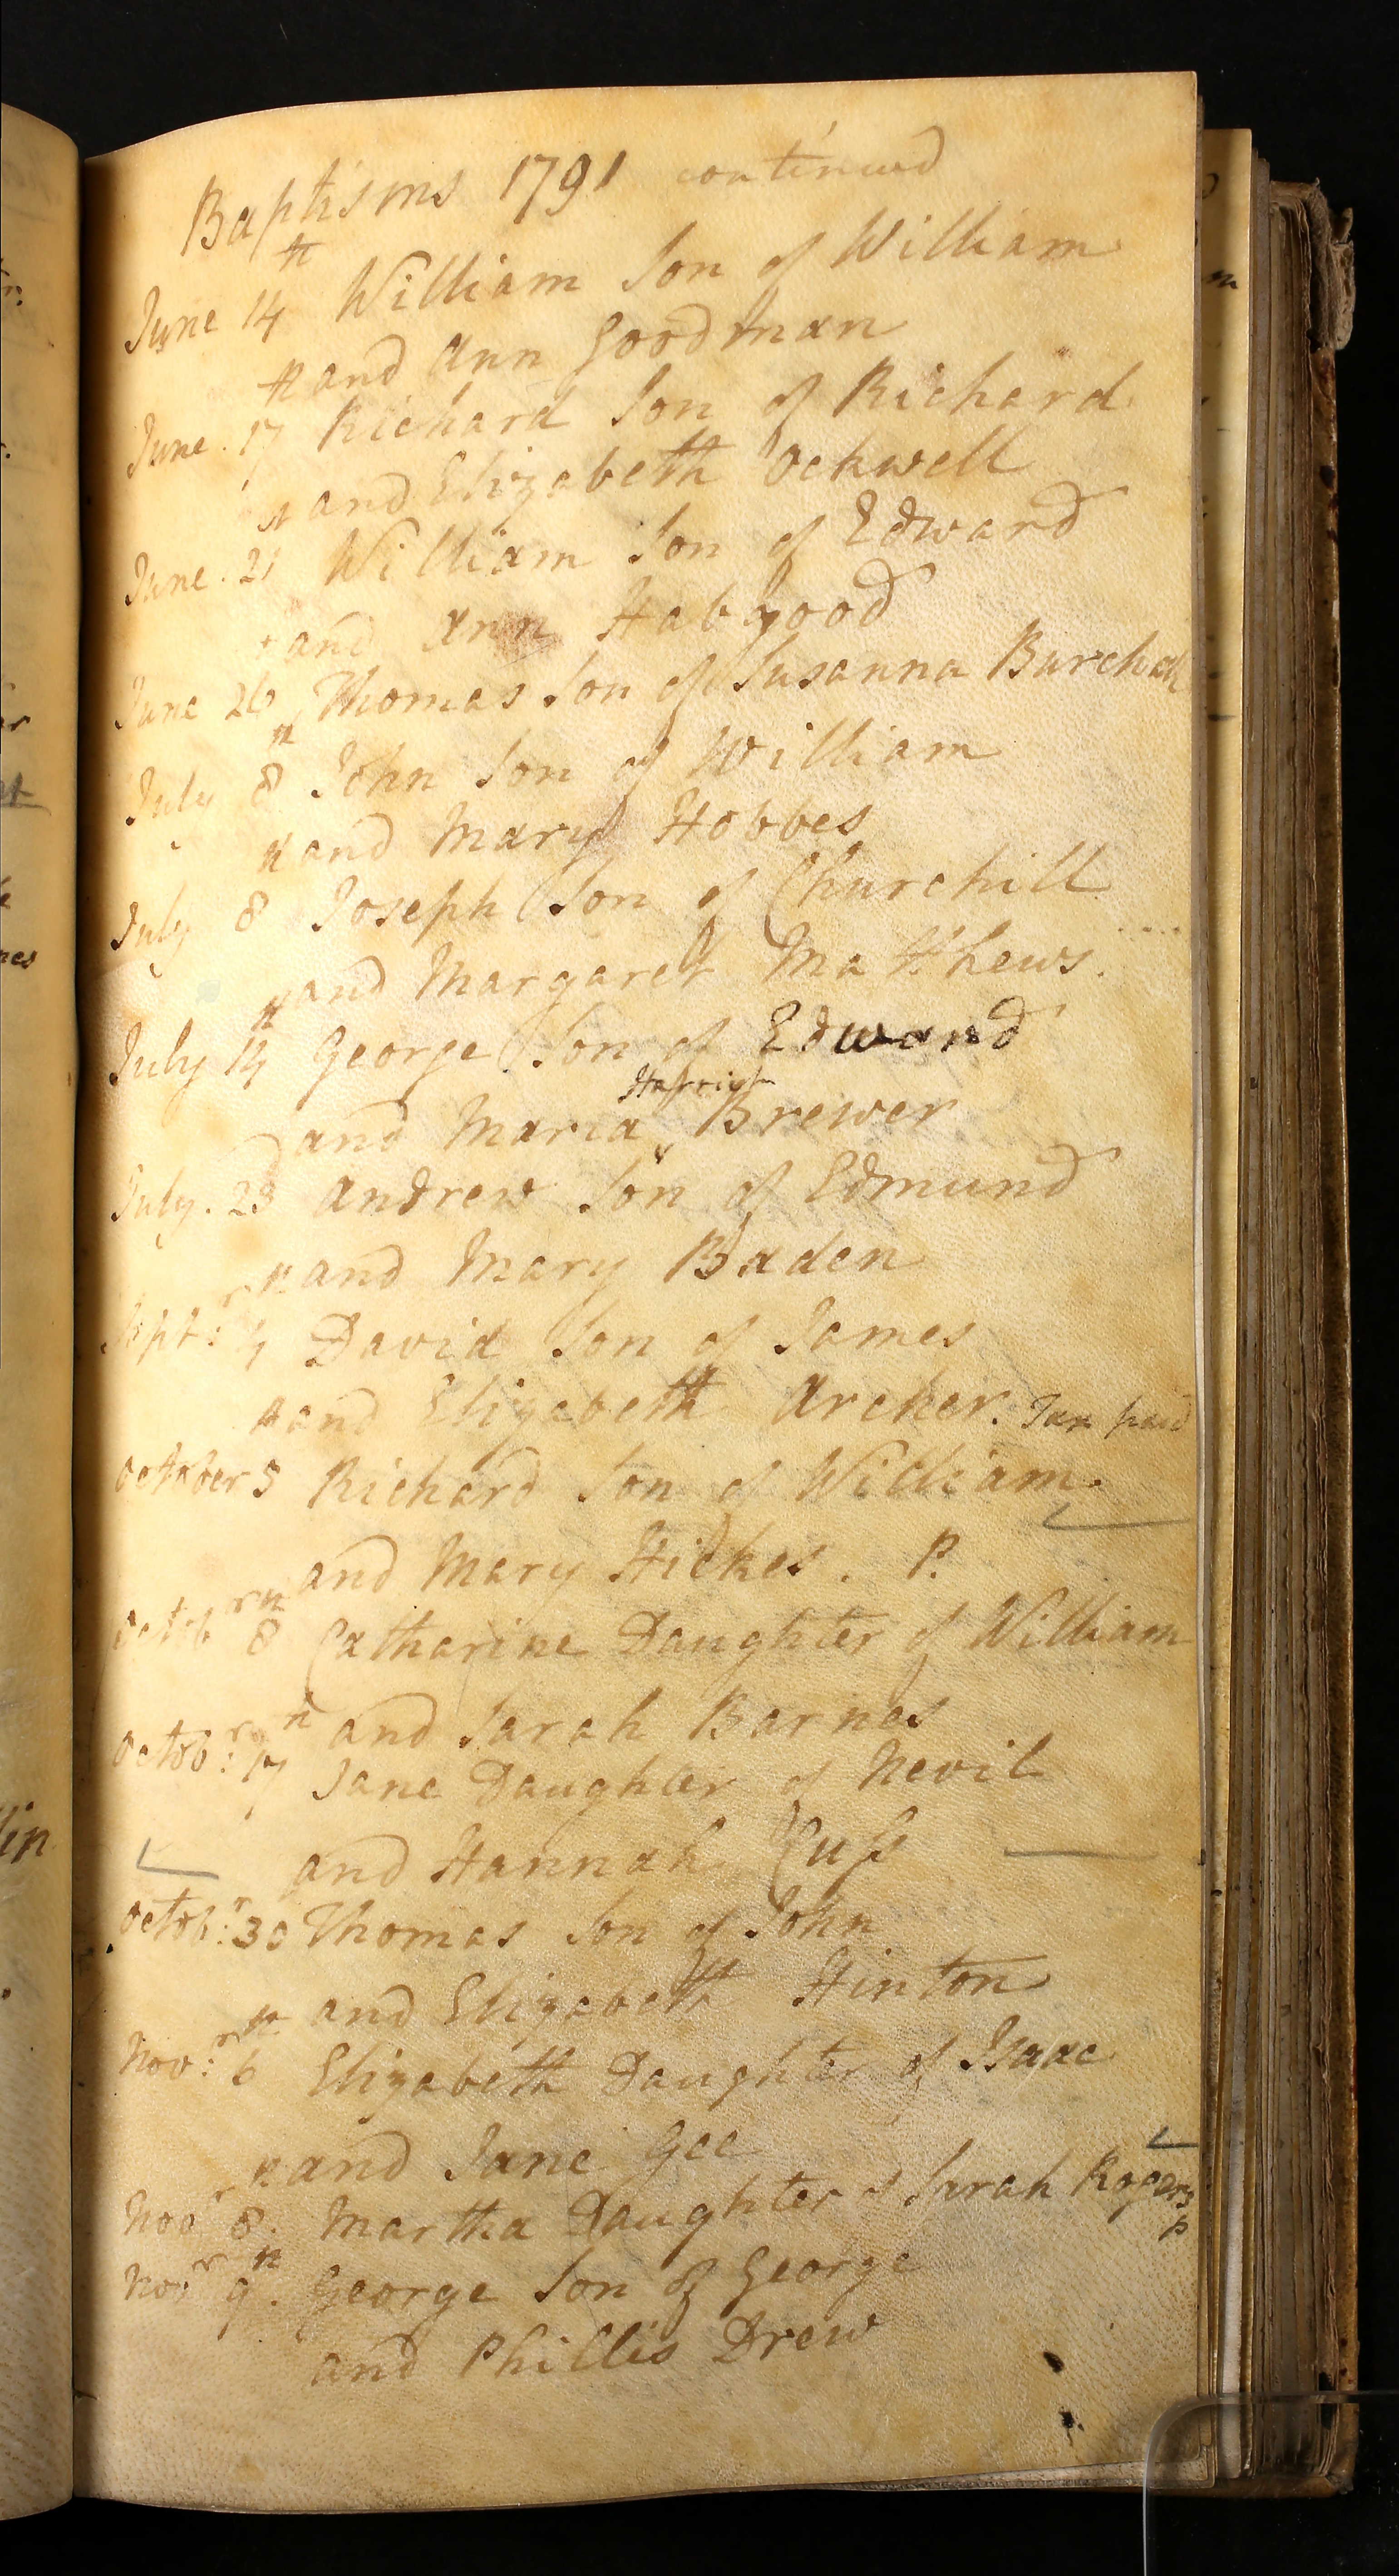 Baptisms 1791 continued
June 14th William Son of William
and Ann Goodman
June. 17th Richard Son of Richard
and Elizabeth Ockwell
June. 21st William Son of Edward
and Ann Habgood
June 26 Thomas Son of Susanna
July 8th John Son of William
and Mary Hobbes
July 8th Joseph Son of Churchill
and Margaret Matthews.
July 14th George Son of Edward
Harriot
and Maria Brewer
July. 23 Andrew Son of Edmund
and Mary Baden
Septr: David Son of James
and Elizabeth Archer. Tax paid
October 5th Richard Son of William
and Mary Hickes. P.
Octobr 8th Catharine Daughter of William
and Sarah Barnes
Octobr: 17th Jane Daughter of Nevil
and Hannah Cuss
Octobr: 30 Thomas Son of John
and Elizabeth Hinton
Novr: 6th Elizabeth Daughter of Isaac
and Jane Gee
Novr 8th. Martha Daughter of Sarah Rogers
p
Novr 9th. George Son of George
and Phillis Drew